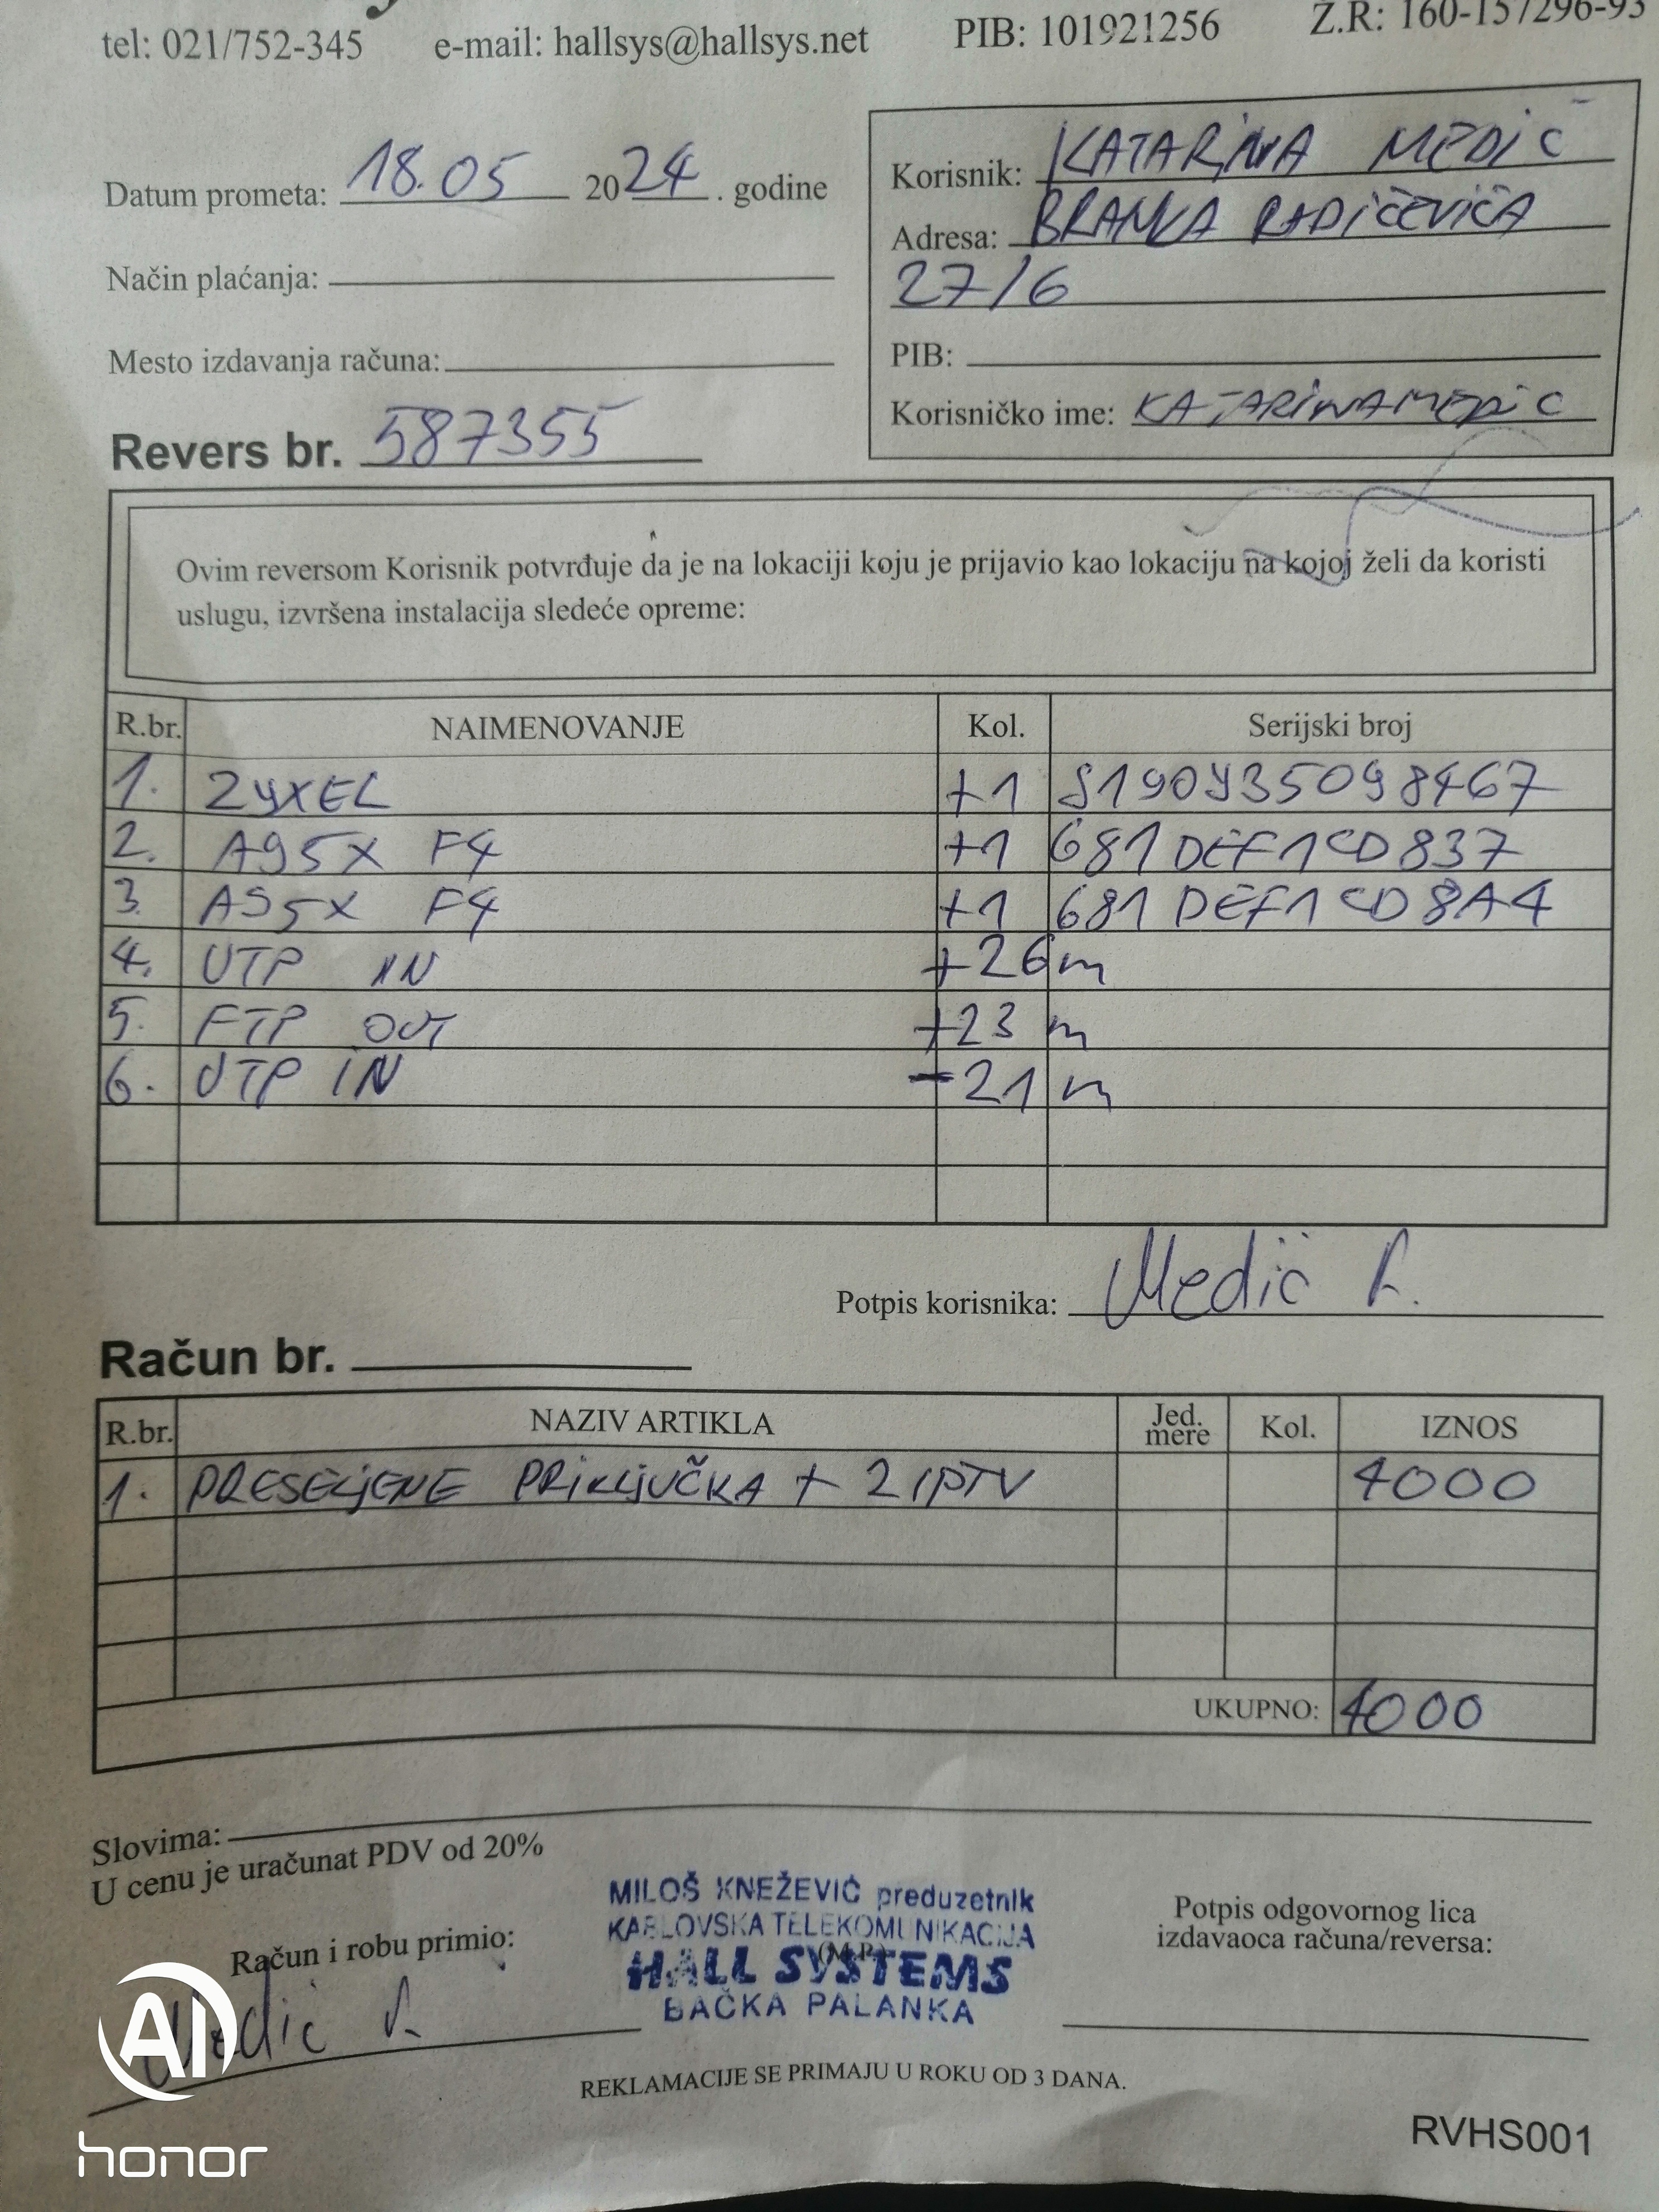 tel: 021/752-345 e-mail: hallsys@hallsys.net PIB: 101921256 Ž.R: 160-157296-93
Datum prometa: 18.05 2024. godine
Način plaćanja:
Mesto izdavanja računa:
Revers br. 587355
Korisnik: KATARINA MEDIĆ
Adresa: BRANKA RADIČEVIĆA
27/6
PIB:
Korisničko ime: KATARINAMEDIC
Ovim reversom Korisnik potvrđuje da je na lokaciji koju je prijavio kao lokaciju na kojoj želi da koristi
uslugu, izvršena instalacija sledeće opreme:
R.br. NAIMENOVANJE Kol. Serijski broj
1. ZYXEL +1 S190Y35098467
2. A95X F4 +1 681DEF1CD837
3. A95X F4 +1 681DEF1CD8A4
4. UTP IN +26m
5. FTP OUT +23 m
6. UTP IN -21 m
Potpis korisnika: Medić
Račun br.
R.br. NAZIV ARTIKLA Jed. mere Kol. IZNOS
1. PRESELJENE PRIKLJUČKA + 2 IPTV 4000
UKUPNO: 4000
Slovima:
U cenu je uračunat PDV od 20%
Račun i robu primio:
Medić
MILOŠ KNEŽEVIĆ preduzetnik
KABLOVSKA TELEKOMUNIKACIJA
(M.P.)
HALL SYSTEMS
BAČKA PALANKA
Potpis odgovornog lica
izdavaoca računa/reversa:
REKLAMACIJE SE PRIMAJU U ROKU OD 3 DANA.
RVHS001
AI
honor